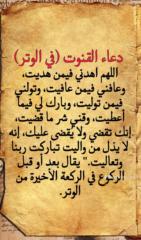 دعاء القنوت (في الوتر)
اللهم أهدني فيمن هديت،
وعافني فيمن عافيت، وتولني
فيمن توليت، وبارك لي فيما
أعطيت، وقني شر ما قضيت،
إنك تقضي ولا يقضى عليك، إنه
لا يذل من واليت تباركت ربنا
وتعاليت." يقال بعد أو قبل
الركوع في الركعة الأخيرة من
الوتر.